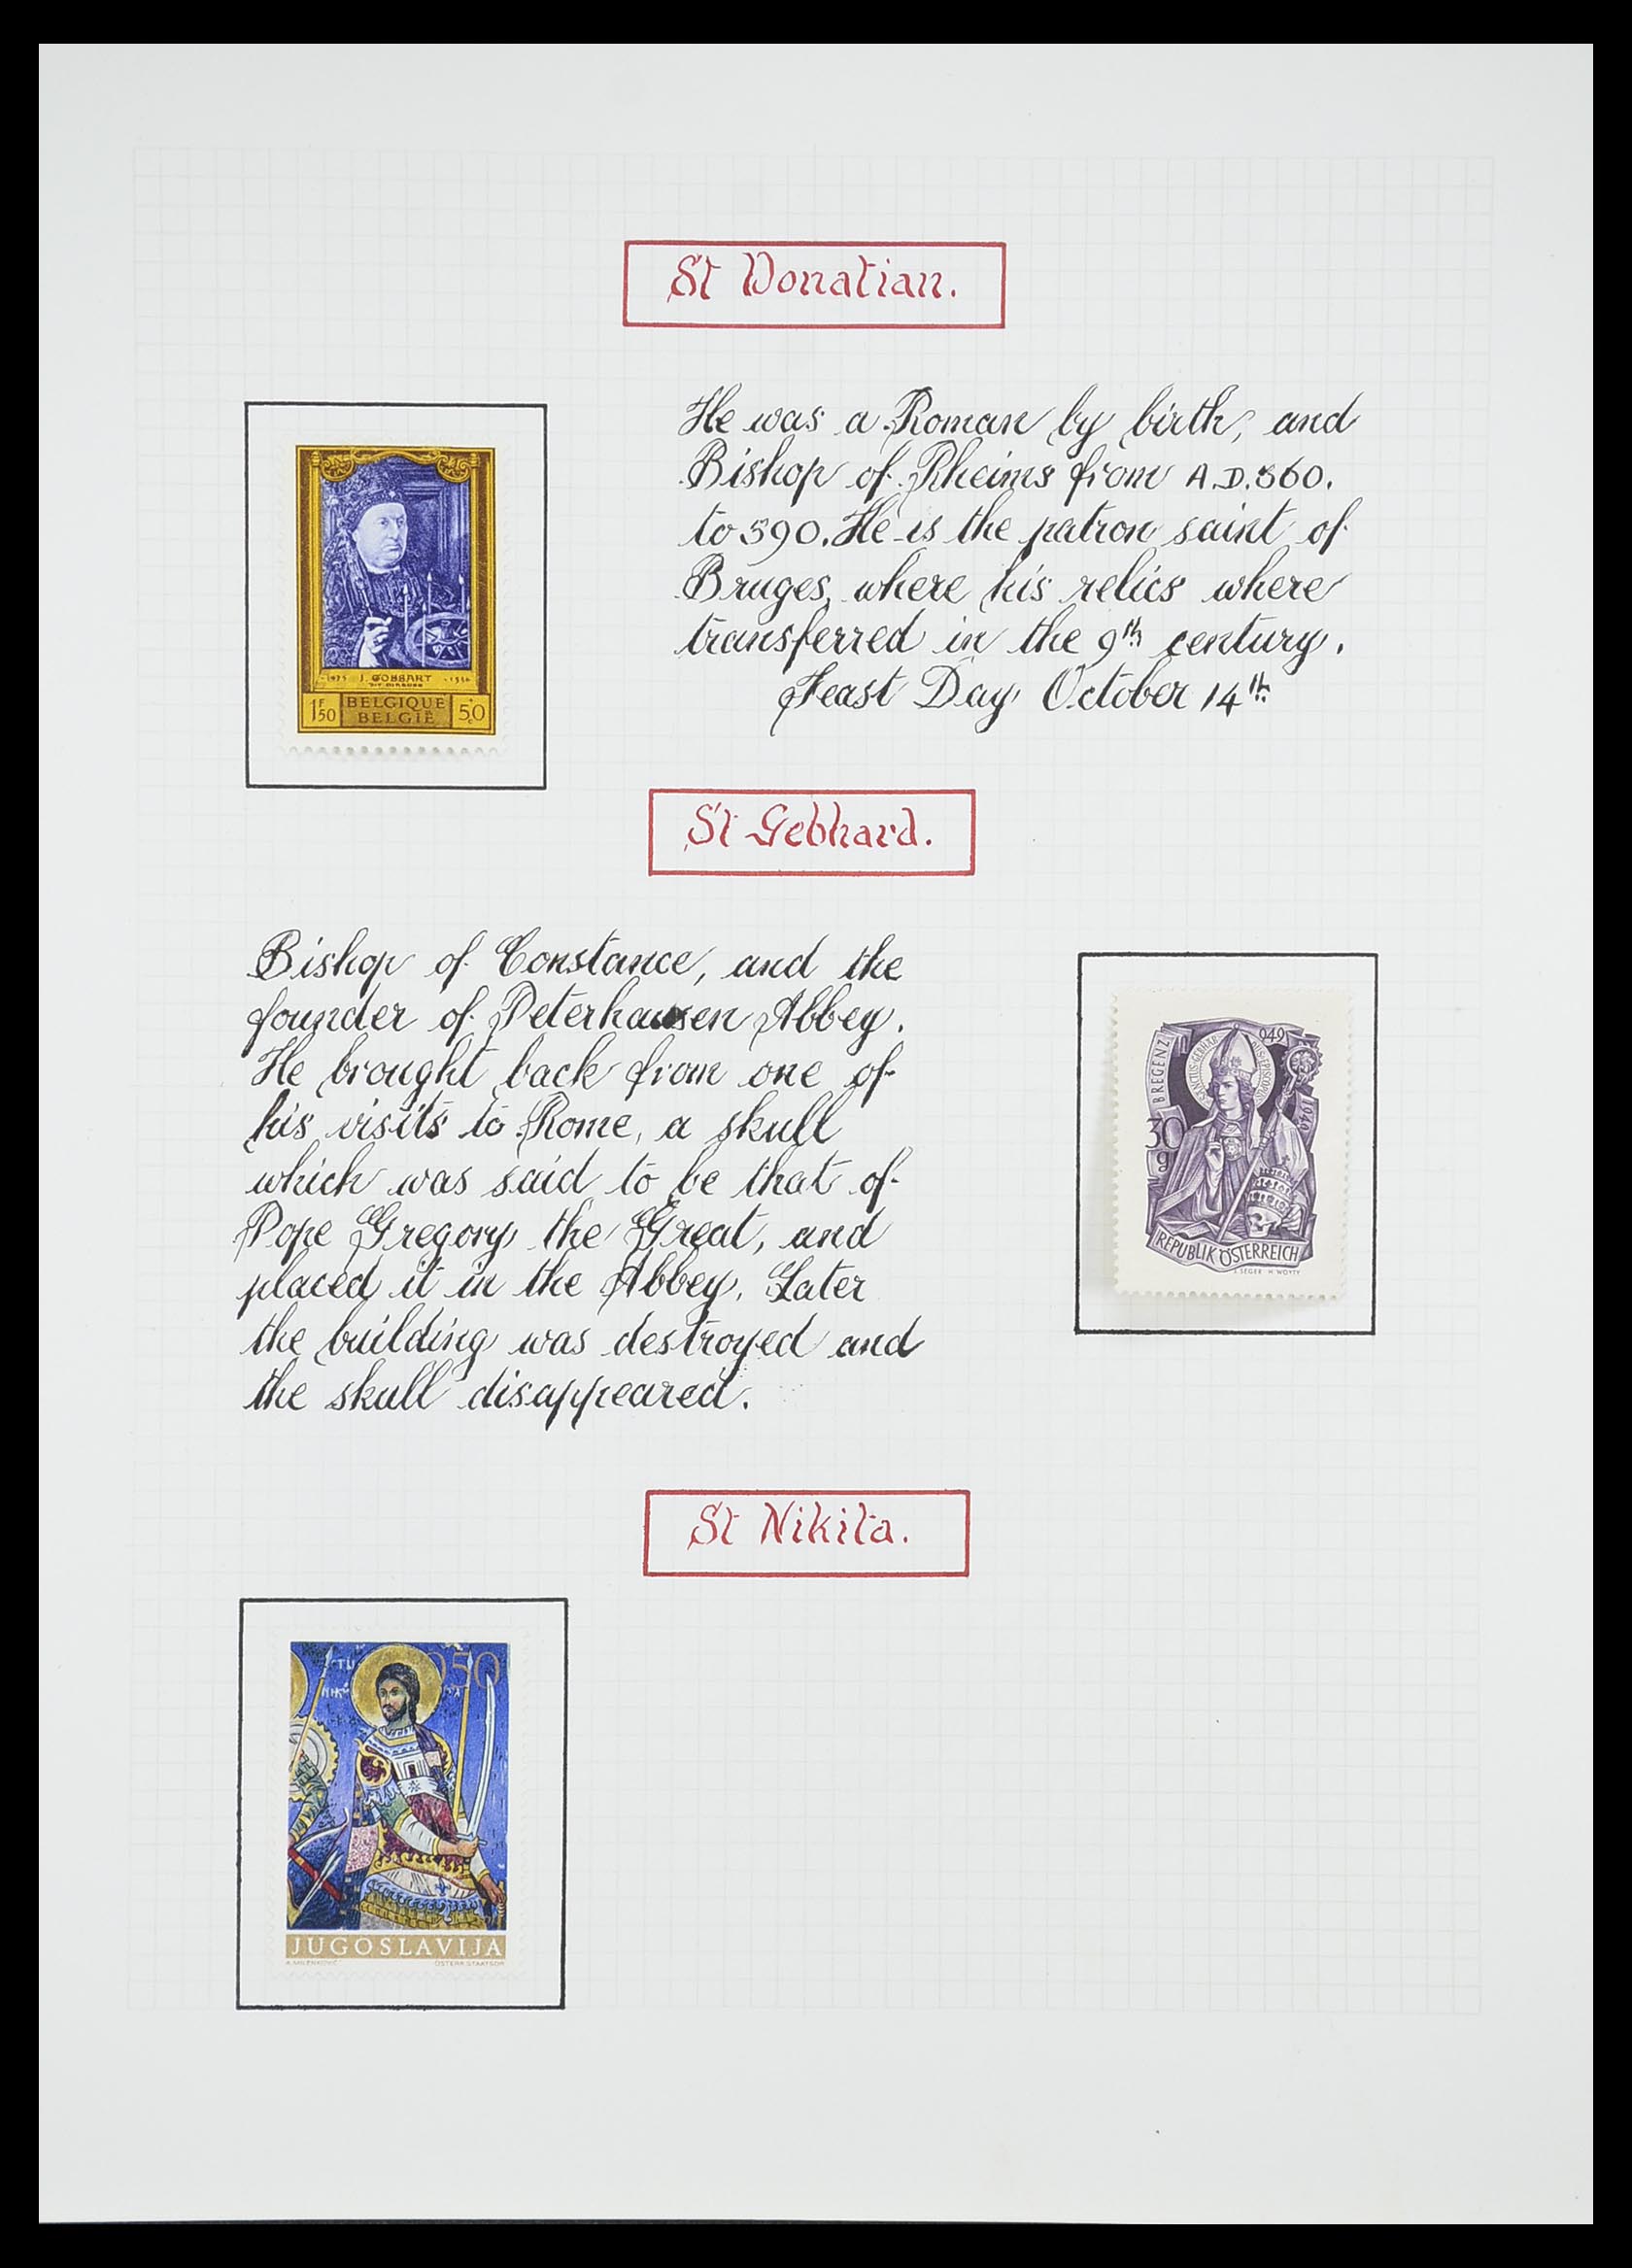 St Donatian.
He was a Roman by birth, and
Bishop of Rheims from A.D. 360.
to 390. He is the patron saint of
Bruges, where his relics where
transferred in the 9th century.
Feast Day October 14th
J. GOSSART
1F50 BELGIQUE 50
BELGIË
St Gebhard.
Bishop of Constance, and the
founder of Peterhausen Abbey.
He brought back from one of
his visits to Rome, a skull
which was said to be that of
Pope Gregory the Great, and
placed it in the Abbey. Later
the building was destroyed and
the skull disappeared.
BREGENZ
949
1949
30
g
REPUBLIK ÖSTERREICH
St Nikita.
050
JUGOSLAVIJA